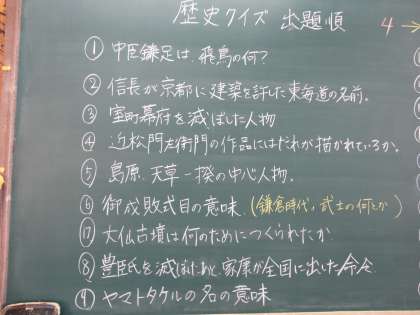 歴史クイズ 出題順
4 →
① 中臣鎌足は、飛鳥の何?
② 信長が京都に建築を許した東海道の名前。
③ 室町幕府を滅ぼした人物
④ 近松門左衛門の作品にはだれが描かれているか。
⑤ 島原、天草一揆の中心人物。
⑥ 御成敗式目の意味。(鎌倉時代、武士の何とか)
⑰ 大仙古墳は何のためにつくられたか
⑧ 豊臣氏を滅ぼしたあと、家康が全国に出した命令
④ ヤマトタケルの名の意味